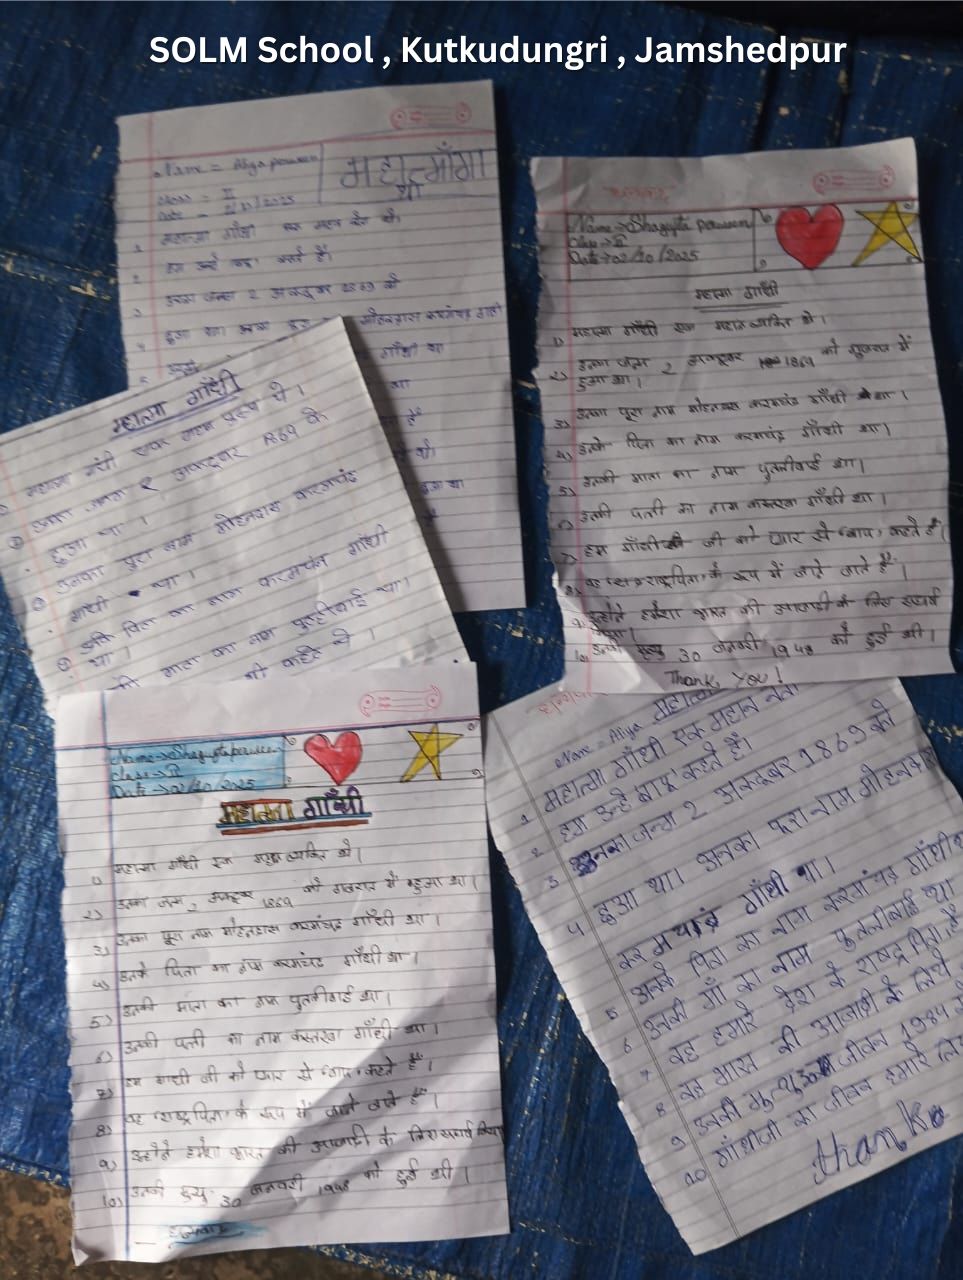 SOLM School , Kutkudungri , Jamshedpur
Name = Aliya parween
महात्माँगा
class = II
महात्मा गाँधी एक महान
1
2
हम उन्हें बापू कहते हैं।
3
उनका जन्म 2 अक्टूबर 1869 को
4
हुआ था। उनका पूरा नाम मोहनदास करमचंद गाधी
गाँधी था
था
है
हुआ था
Name → Shagufta parween
class → II
Date → 02/10/2025
महात्मा गाँधी
1) महात्मा गाँधी एक महान व्यक्ति थे।
2) उनका जन्म 2 अक्टूबर 1869 को गुजरात में
हुआ था।
3) उनका पूरा नाम मोहनदास करमचंद गाँधी था।
4) उनके पिता का नाम करमचंद गाँधी था।
5) उनकी माता का नाम पुतलीबाई था।
6) उनकी पत्नी का नाम कस्तूरबा गाँधी था।
7) हम गाँधी जी को प्यार से "बापू" कहते हैं।
8) वह "राष्ट्रपिता" के रूप में जाने जाते हैं।
9) उन्होंने हमेशा भारत की आजादी के लिए संघर्ष
किया।
10) उनकी मृत्यु 30 जनवरी 1948 को हुई थी।
Thank You!
महात्मा गाँधी
महात्मा गांधी एक महान पुरुष थे।
उनका जन्म 2 अक्टूबर 1869 के
हुआ था।
उनका पूरा नाम मोहनदास करमचंद
गांधी था।
उनके पिता का नाम करमचंद गांधी
था।
माता का नाम पुतलीबाई था।
कहते थे।
Name → Shagufta parween
class → II
Date → 02/10/2025
महात्मा गाँधी
1) महात्मा गाँधी एक महान व्यक्ति थे।
2) उनका जन्म 2 अक्टूबर 1869 को गुजरात में हुआ था।
3) उनका पूरा नाम मोहनदास करमचंद गाँधी था।
4) उनके पिता का नाम करमचंद गाँधी था।
5) उनकी माता का नाम पुतलीबाई था।
6) उनकी पत्नी का नाम कस्तूरबा गाँधी था।
7) हम गाधी जी को प्यार से "बापू" कहते हैं।
8) वह "राष्ट्रपिता" के रूप में जाने जाते हैं।
9) उन्होंने हमेशा भारत की आजादी के लिए संघर्ष किया
10) उनकी मृत्यु 30 जनवरी 1948 को हुई थी।
धन्यवाद
Name = Aliya
महात्मा
1 महात्मा गाँधी एक महान नेता
2 हम उन्हें बापू कहते हैं।
3 उनका जन्म 2 अक्टूबर 1869 को
4 हुआ था। उनका पूरा नाम मोहनदास
करमचंद गाँधी था।
5 उनके पिता का नाम करमचंद गाँधी था
6 उनकी माँ का नाम पुतलीबाई था
7 वह हमारे देश के राषद्र पिता है
8 वह भारत की आजादी के लिये
9 उनकी 30 जीवन 1984
10 गाँधीजी का जीवन हमारे लि